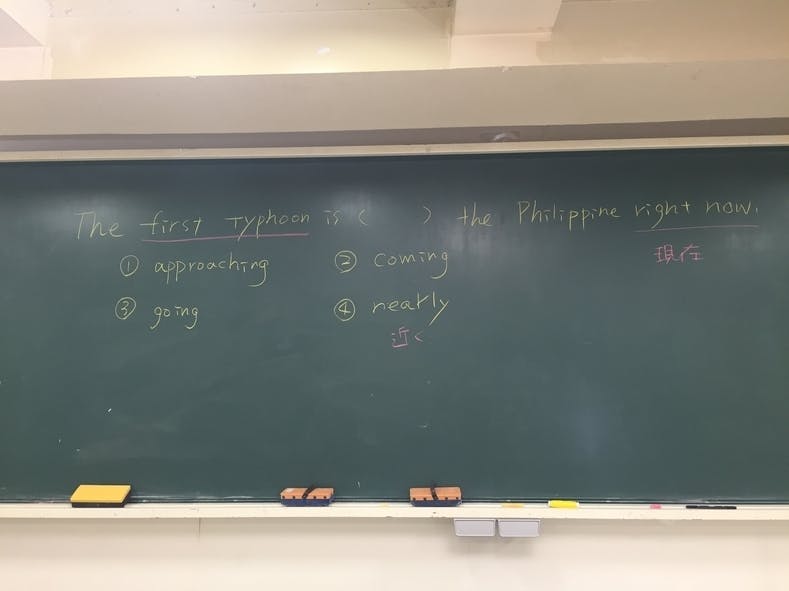 The first Typhoon is (      ) the Philippine right now.
現在
① approaching ② coming
③ going ④ nearly
近く